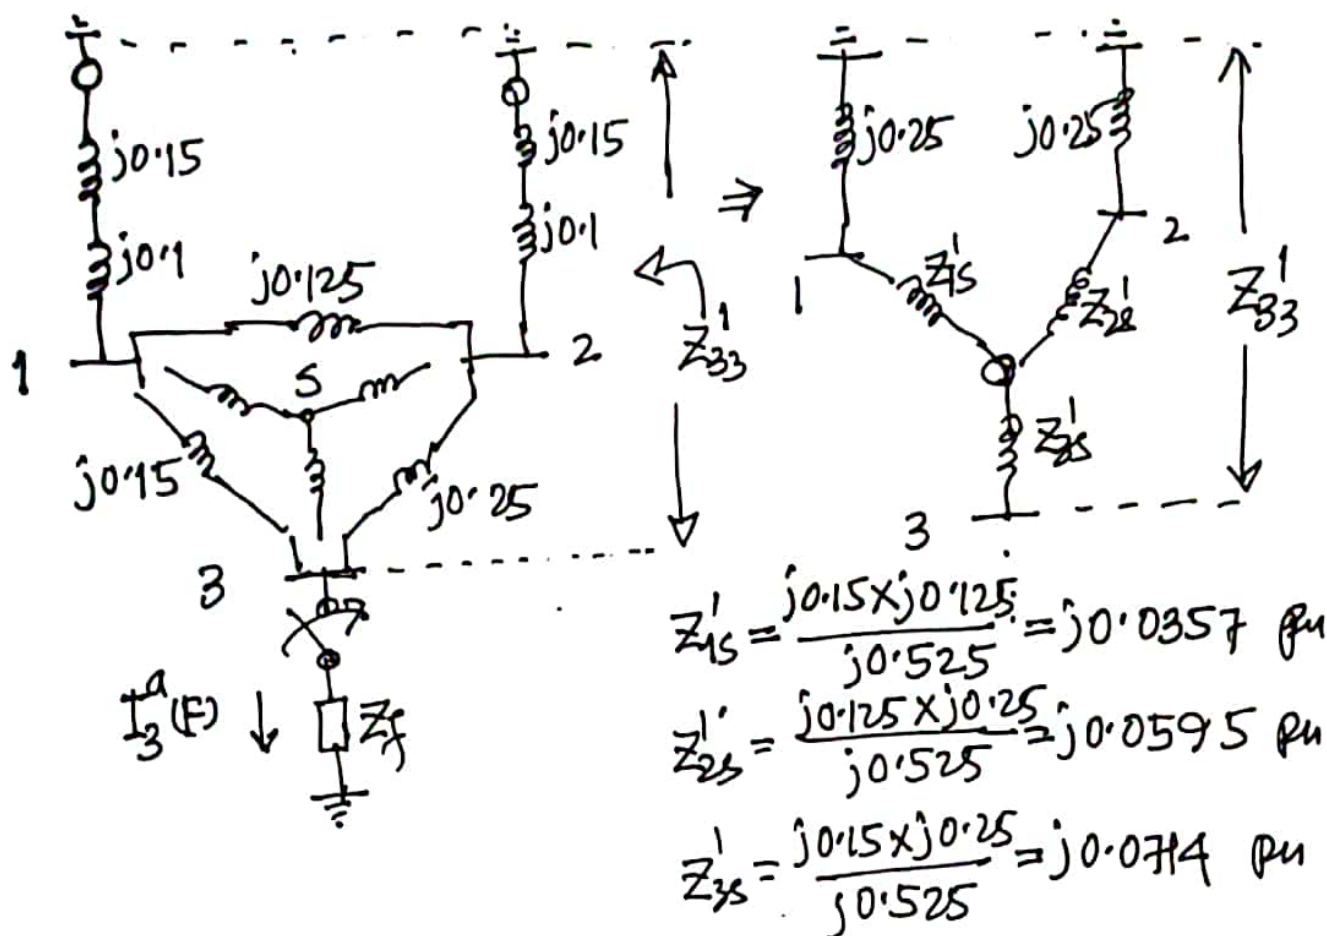 j0.15
j0.1
j0.15
j0.1
j0.125
1
2
S
j0.15
j0.25
3
Z¹₃₃
I₃ᵃ(F) ↓ Z_f
⇒
j0.25
j0.25
1
2
Z¹₁s
Z¹₂s
Z¹₃s
3
Z¹₃₃
Z¹₁s = j0.15×j0.125 / j0.525 = j0.0357 pu
Z¹₂s = j0.125×j0.25 / j0.525 = j0.0595 pu
Z¹₃s = j0.15×j0.25 / j0.525 = j0.0714 pu